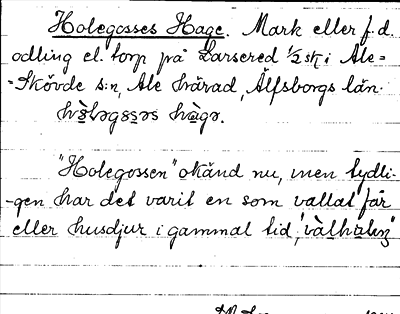 Holegosses Hage. Mark eller f.d.
odling el. torp på Larsered 1/2 sk i Ale=
-Skövde s:n, Ale härad, Älfsborgs län.
"Holegossen" okänd nu, men tydli-
-gen har det varit en som vallat får
eller husdjur i gammal tid,